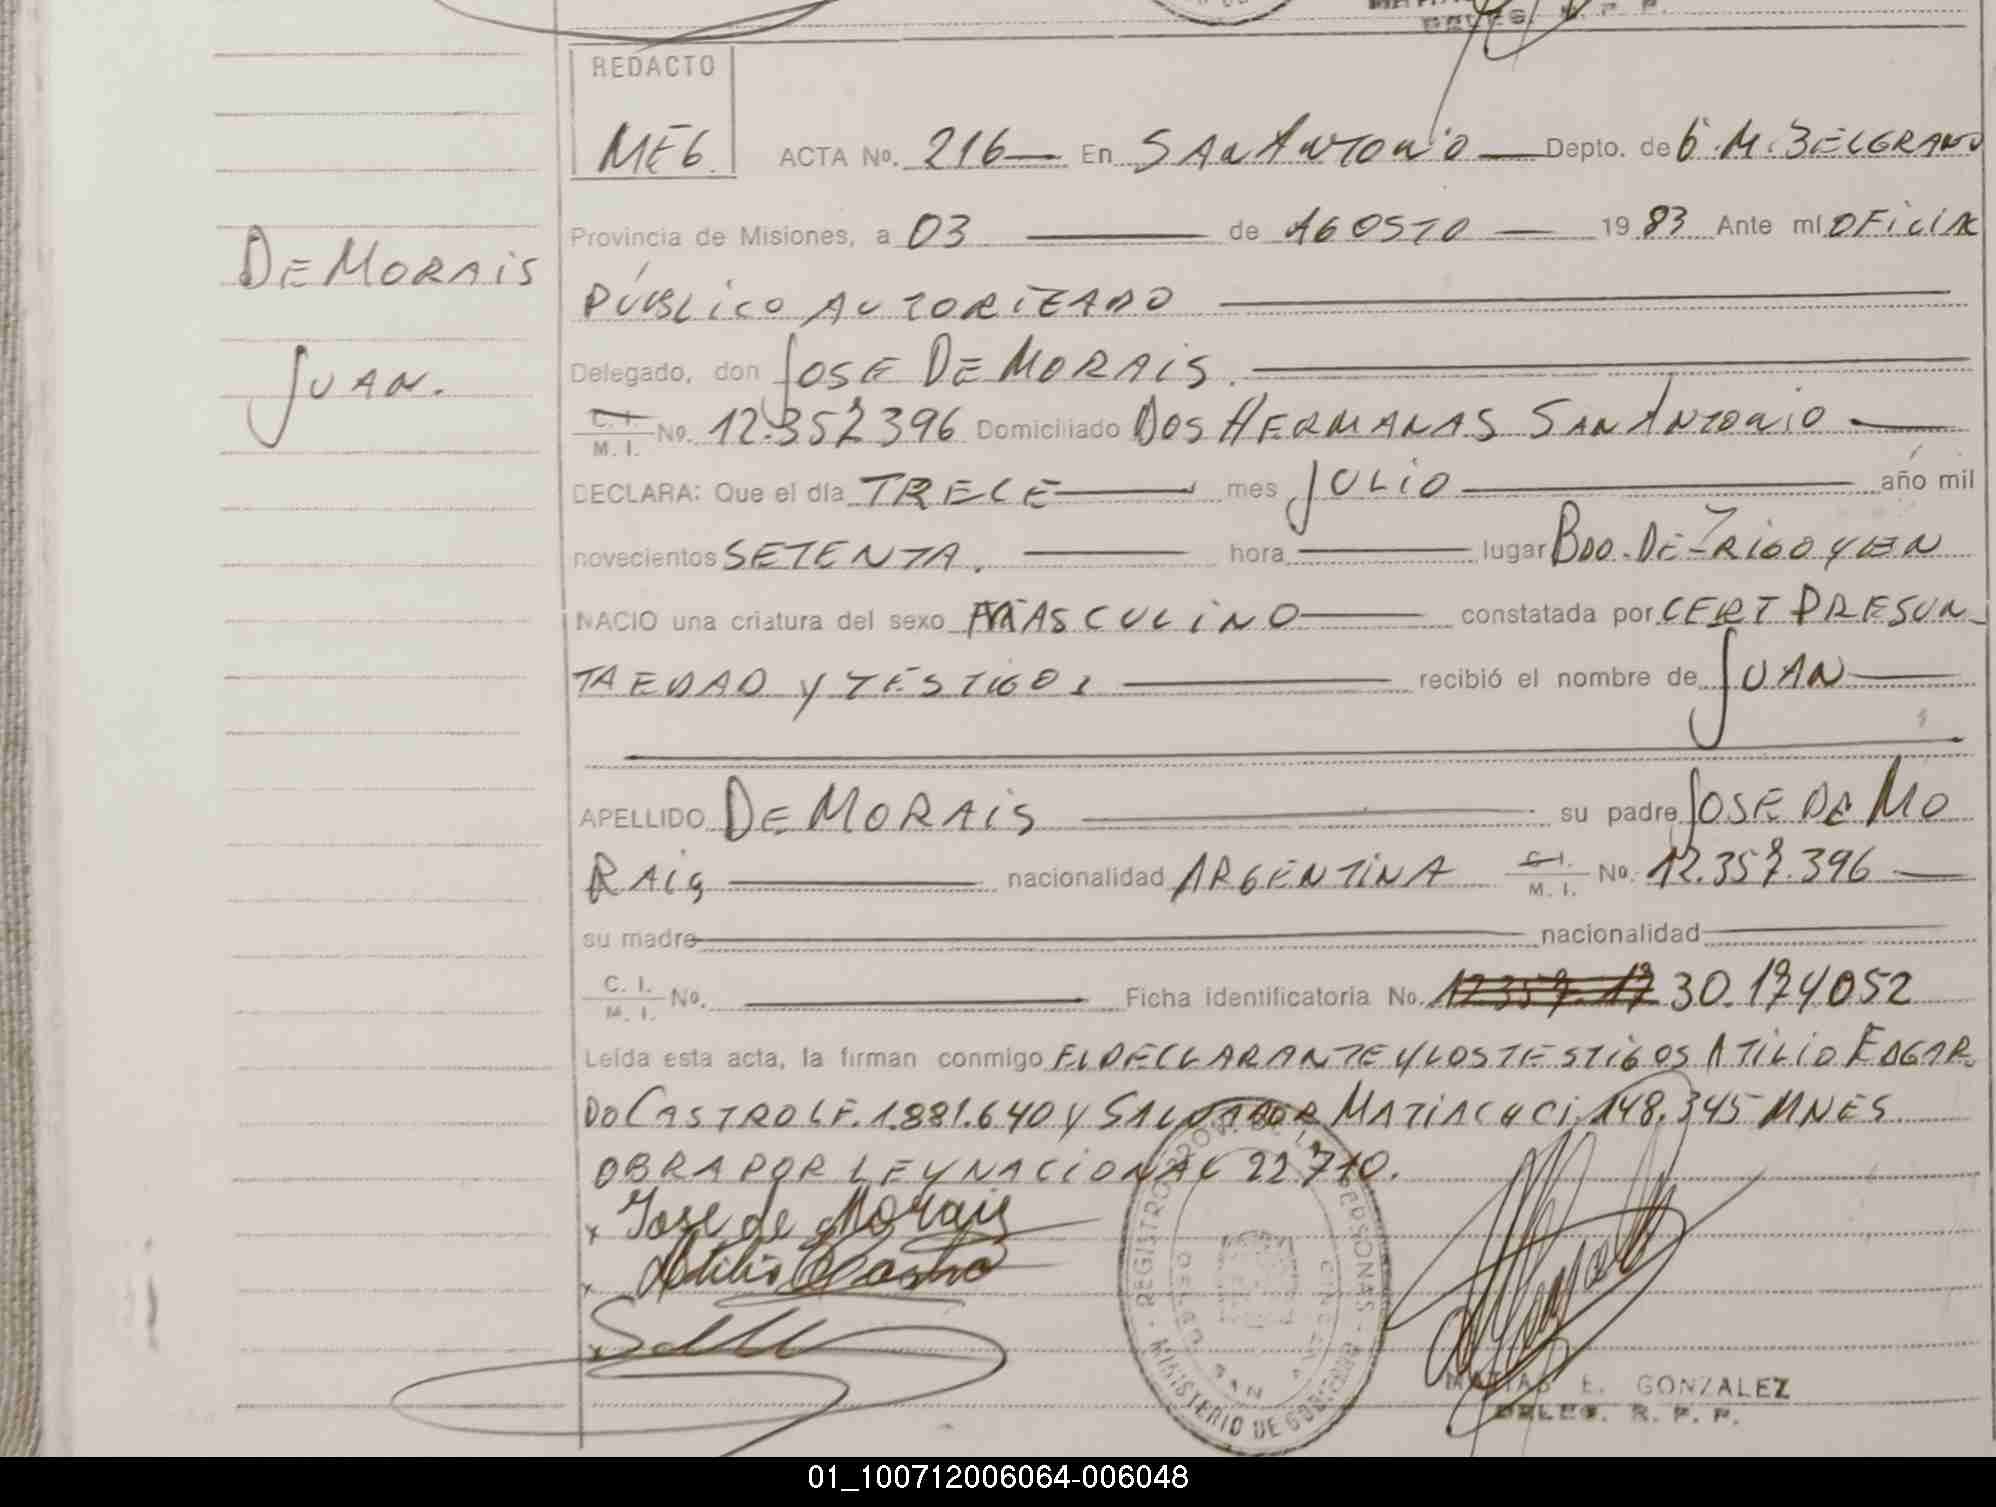 REDACTO
MEG.
ACTA No. 216 En SAN ANTONIO Depto. de G. M. BELGRANO
Provincia de Misiones, a 03 de AGOSTO 1983 Ante mí OFICIAL
PÚBLICO AUTORIZADO
DE MORAIS
JUAN.
Delegado, don JOSE DE MORAIS.
C. I. / M. I. No. 12.357396 Domiciliado DOS HERMANAS SAN ANTONIO
DECLARA: Que el día TRECE mes JULIO año mil
novecientos SETENTA. hora lugar BDO. DE IRIGOYEN
NACIO una criatura del sexo MASCULINO constatada por CERT PRESUN_
TA EDAD Y TESTIGOS recibió el nombre de JUAN
APELLIDO DE MORAIS su padre JOSE DE MO
RAIS nacionalidad ARGENTINA C. I. / M. I. No. 12.357.396
su madre nacionalidad
C. I. / M. I. No. Ficha identificatoria No. 12357.17 30.174052
Leída esta acta, la firman conmigo EL DECLARANTE Y LOS TESTIGOS ATILIO EDGAR_
DO CASTRO LE. 1.881.640 Y SALVADOR MATIAC CI. 148.345 MNES
OBRA POR LEY NACIONAL 22.710.
x Jose de Morais
x Atilio Castro
x
REGISTRO PROV. DE LAS PERSONAS - MINISTERIO DE GOBIERNO
MATIAS E. GONZALEZ
DELEG. R. P. P.
01_100712006064-006048